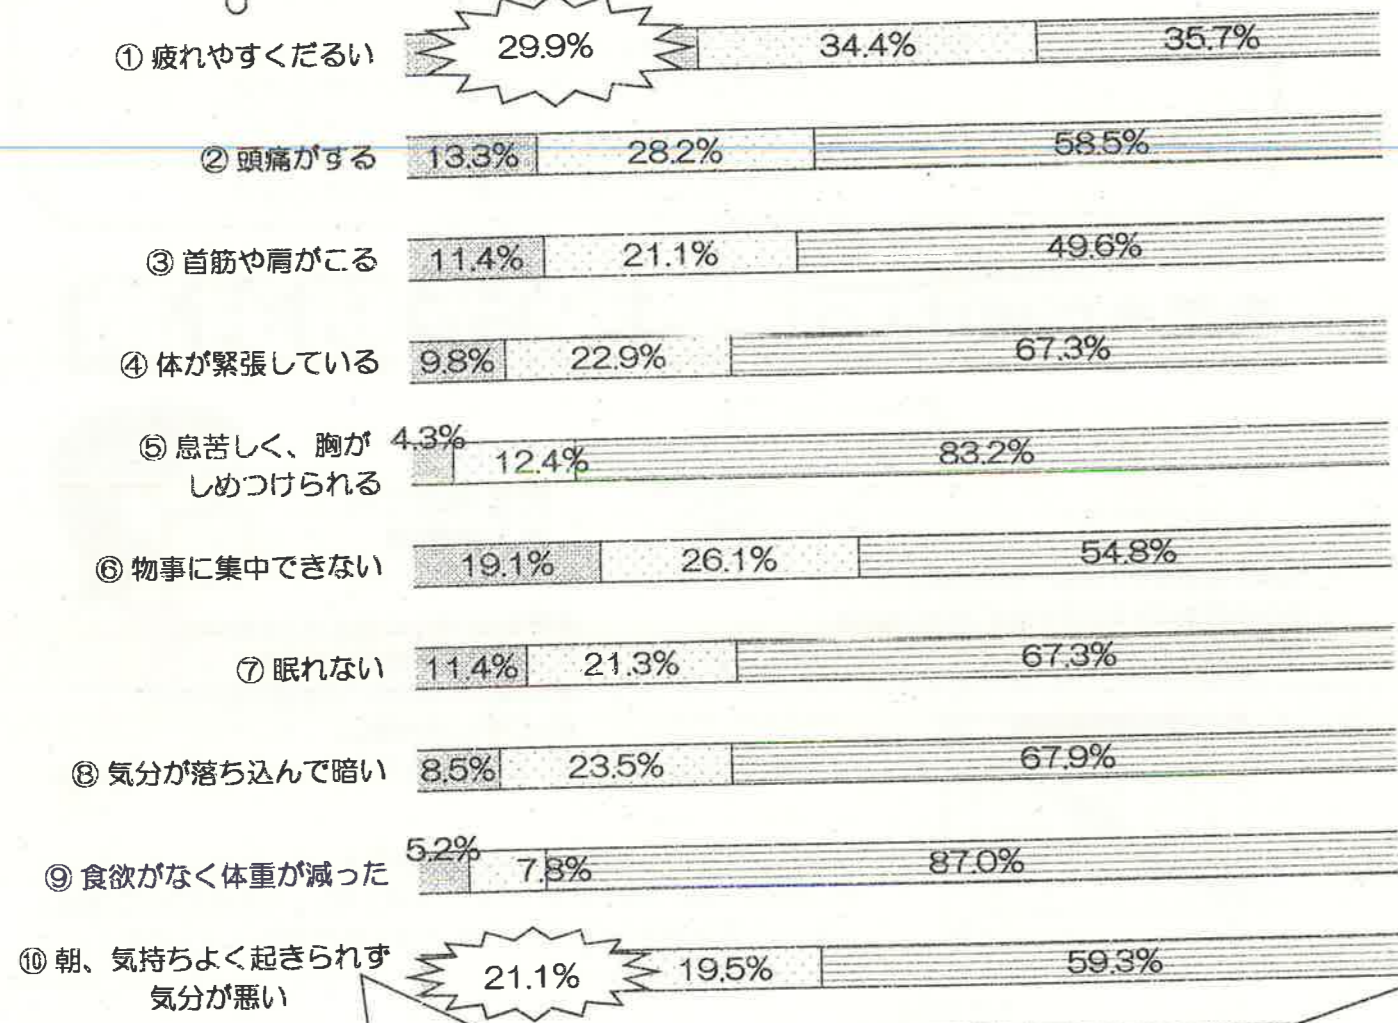 ① 疲れやすくだるい 29.9% 34.4% 35.7%
② 頭痛がする 13.3% 28.2% 58.5%
③ 首筋や肩がこる 11.4% 21.1% 49.6%
④ 体が緊張している 9.8% 22.9% 67.3%
⑤ 息苦しく、胸が 4.3% 12.4% 83.2%
しめつけられる
⑥ 物事に集中できない 19.1% 26.1% 54.8%
⑦ 眠れない 11.4% 21.3% 67.3%
⑧ 気分が落ち込んで暗い 8.5% 23.5% 67.9%
⑨ 食欲がなく体重が減った 5.2% 7.8% 87.0%
⑩ 朝、気持ちよく起きられず 21.1% 19.5% 59.3%
気分が悪い